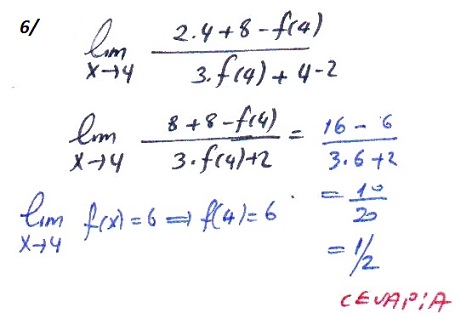 6/
lim x→4 (2.4+8-f(4))/(3.f(4)+4-2)
lim x→4 (8+8-f(4))/(3.f(4)+2) = (16-6)/(3.6+2)
lim x→4 f(x)=6 ⇒ f(4)=6
= 10/20
= 1/2
CEVAP:A